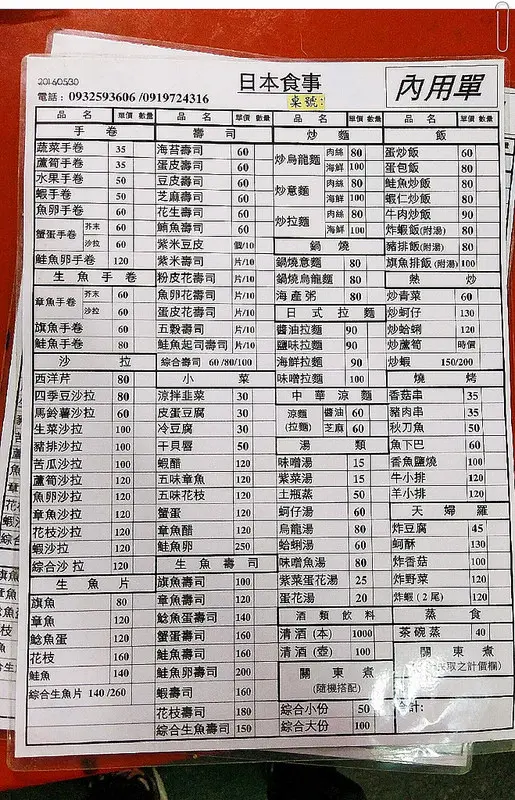 2016/05/30
日本食事
內用單
電話：0932593606 /0919724316
桌號:
品 名 單價 數量
手 卷
蔬菜手卷 35
蘆筍手卷 35
水果手卷 50
蝦手卷 50
魚卵手卷 60
蟹蛋手卷 芥末 60
沙拉 60
鮭魚卵手卷 120
生 魚 手 卷
章魚手卷 芥末 60
沙拉 60
旗魚手卷 60
鮭魚手卷 80
沙 拉
西洋芹 80
四季豆沙拉 80
馬鈴薯沙拉 60
生菜沙拉 100
豬排沙拉 100
苦瓜沙拉 100
蘆筍沙拉 120
魚卵沙拉 120
章魚沙拉 120
花枝沙拉 120
蝦沙拉 120
綜合沙拉 120
生 魚 片
旗魚 80
章魚 120
鯰魚蛋 120
花枝 160
鮭魚 140
綜合生魚片 140 /260
品 名 單價 數量
壽 司
海苔壽司 60
蛋皮壽司 60
豆皮壽司 60
芝麻壽司 60
花生壽司 60
鮪魚壽司 60
紫米豆皮 個/10
紫米壽司 片/10
粉皮花壽司 片/10
魚卵花壽司 片/10
蛋皮花壽司 片/10
五穀壽司 片/10
鮭魚起司壽司 片/10
綜合壽司 60/80/100
小 菜
涼拌韭菜 30
皮蛋豆腐 30
冷豆腐 30
干貝唇 50
蝦醋 120
五味章魚 120
五味花枝 120
蟹蛋 120
章魚醋 120
鮭魚卵 250
生 魚 壽 司
旗魚壽司 100
章魚壽司 120
鯰魚蛋壽司 140
蟹蛋壽司 160
鮭魚壽司 160
鮭魚卵壽司 200
蝦壽司 160
花枝壽司 180
綜合生魚壽司 150
品 名 單價 數量
炒 麵
炒烏龍麵 肉絲 80
海鮮 100
炒意麵 肉絲 80
海鮮 100
炒拉麵 肉絲 80
海鮮 100
鍋 燒
鍋燒意麵 80
鍋燒烏龍麵 80
海產粥 80
日 式 拉 麵
醬油拉麵 90
鹽味拉麵 90
海鮮拉麵 90
味噌拉麵 100
中 華 涼 麵
涼麵 (拉麵) 醬油 60
芝麻 60
湯 類
味噌湯 15
紫菜湯 15
土瓶蒸 50
蚵仔湯 60
烏龍湯 80
蛤蜊湯 60
味噌魚湯 80
紫菜蛋花湯 25
蛋花湯 20
酒 類 飲 料
清酒 (本) 1000
清酒 (壺) 100
關 東 煮
(隨機搭配)
綜合小份 50
綜合大份 100
品 名 單價 數量
飯
蛋炒飯 60
蛋包飯 80
鮭魚炒飯 80
蝦仁炒飯 80
牛肉炒飯 90
炸蝦飯(附湯) 80
豬排飯(附湯) 80
旗魚排飯(附湯) 100
熱 炒
炒青菜 60
炒蚵仔 130
炒蛤蜊 120
炒蘆筍 時價
炒蝦 150/200
燒 烤
香菇串 35
豬肉串 35
秋刀魚 50
魚下巴 60
香魚鹽燒 100
牛小排 120
羊小排 120
天 婦 羅
炸豆腐 45
蚵酥 130
炸香菇 100
炸野菜 120
炸蝦(2尾) 120
蒸 食
茶碗蒸 40
關 東 煮
取之計價欄)
合計: